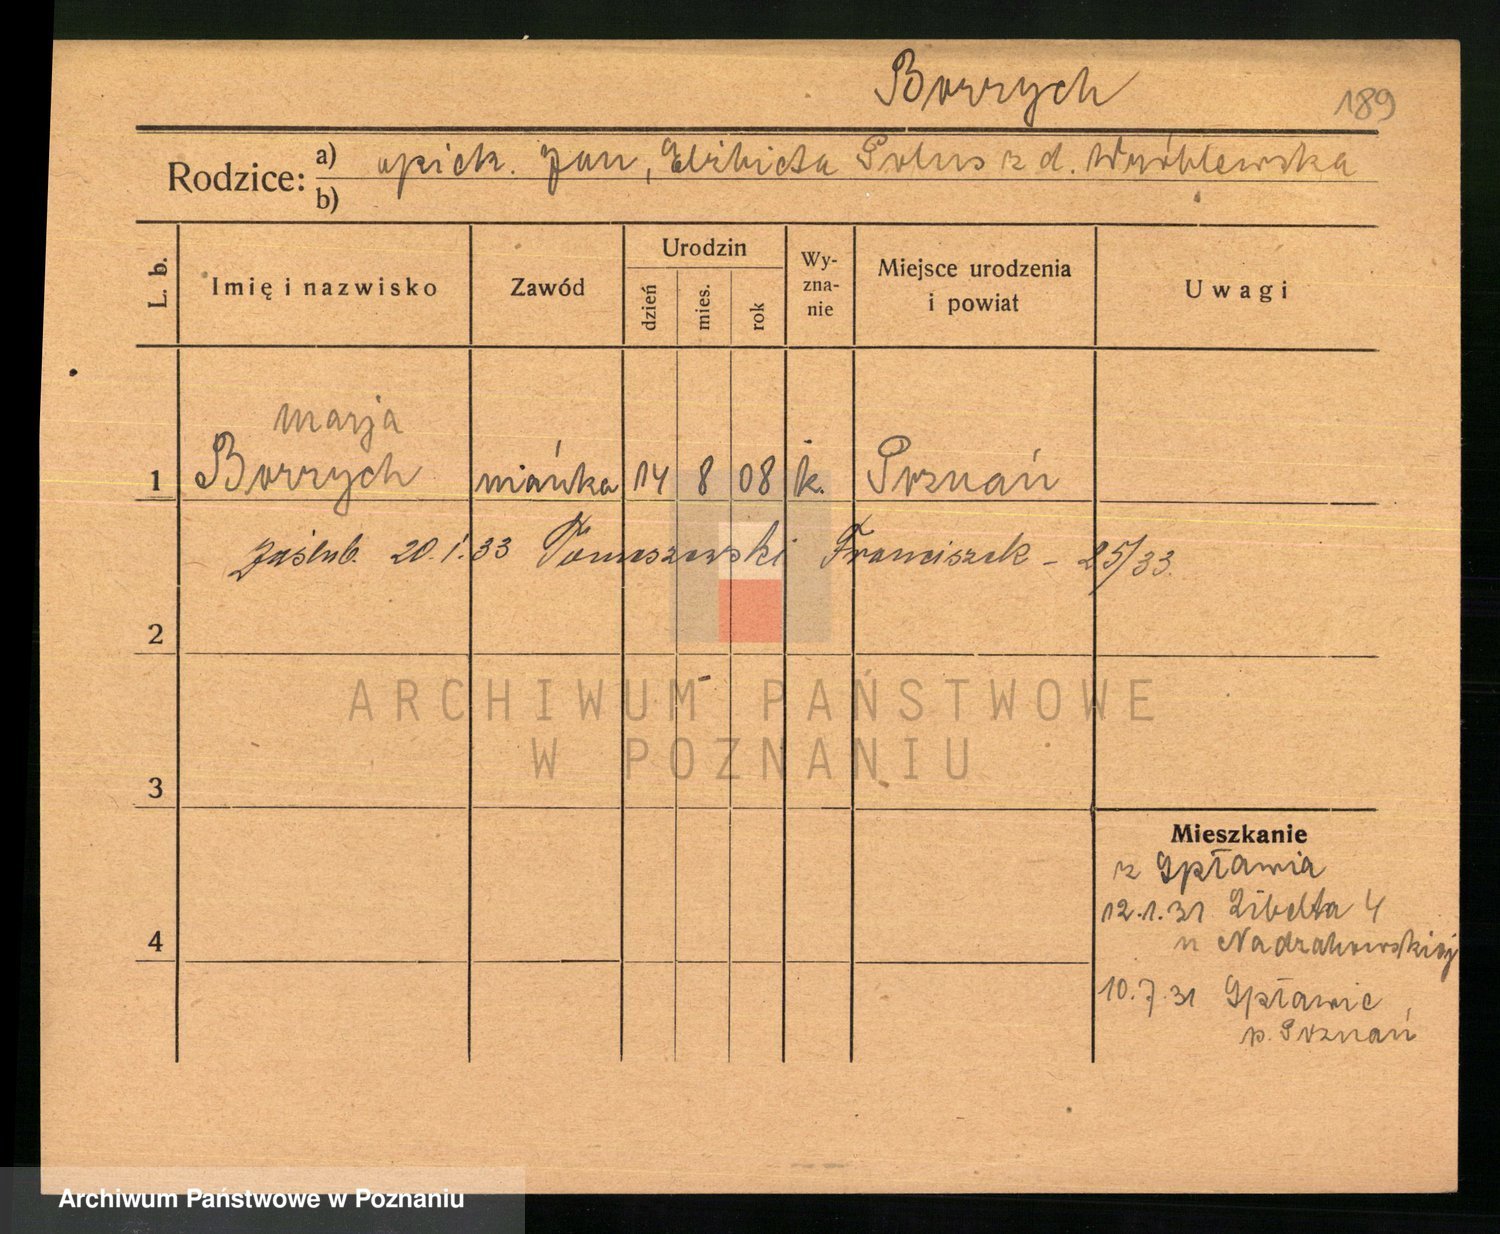 Borrych
189
Rodzice: a) opiek. Jan, Elżbieta Polus z d. Wróblewska
b)
L. b.
Imię i nazwisko
Zawód
Urodzin
dzień
mies.
rok
Wy-
zna-
nie
Miejsce urodzenia
i powiat
Uwagi
marja
1 Borrych niańka 14 8 08 k. Poznań
Zaślub. 20.1.33 Tomaszewski Franciszek - 25/33.
2
3
4
Mieszkanie
z Spławia
12.1.31 Libelta 4
u
10.7.31 Spławie
p. Poznań
ARCHIWUM PAŃSTWOWE
W POZNANIU
Archiwum Państwowe w Poznaniu